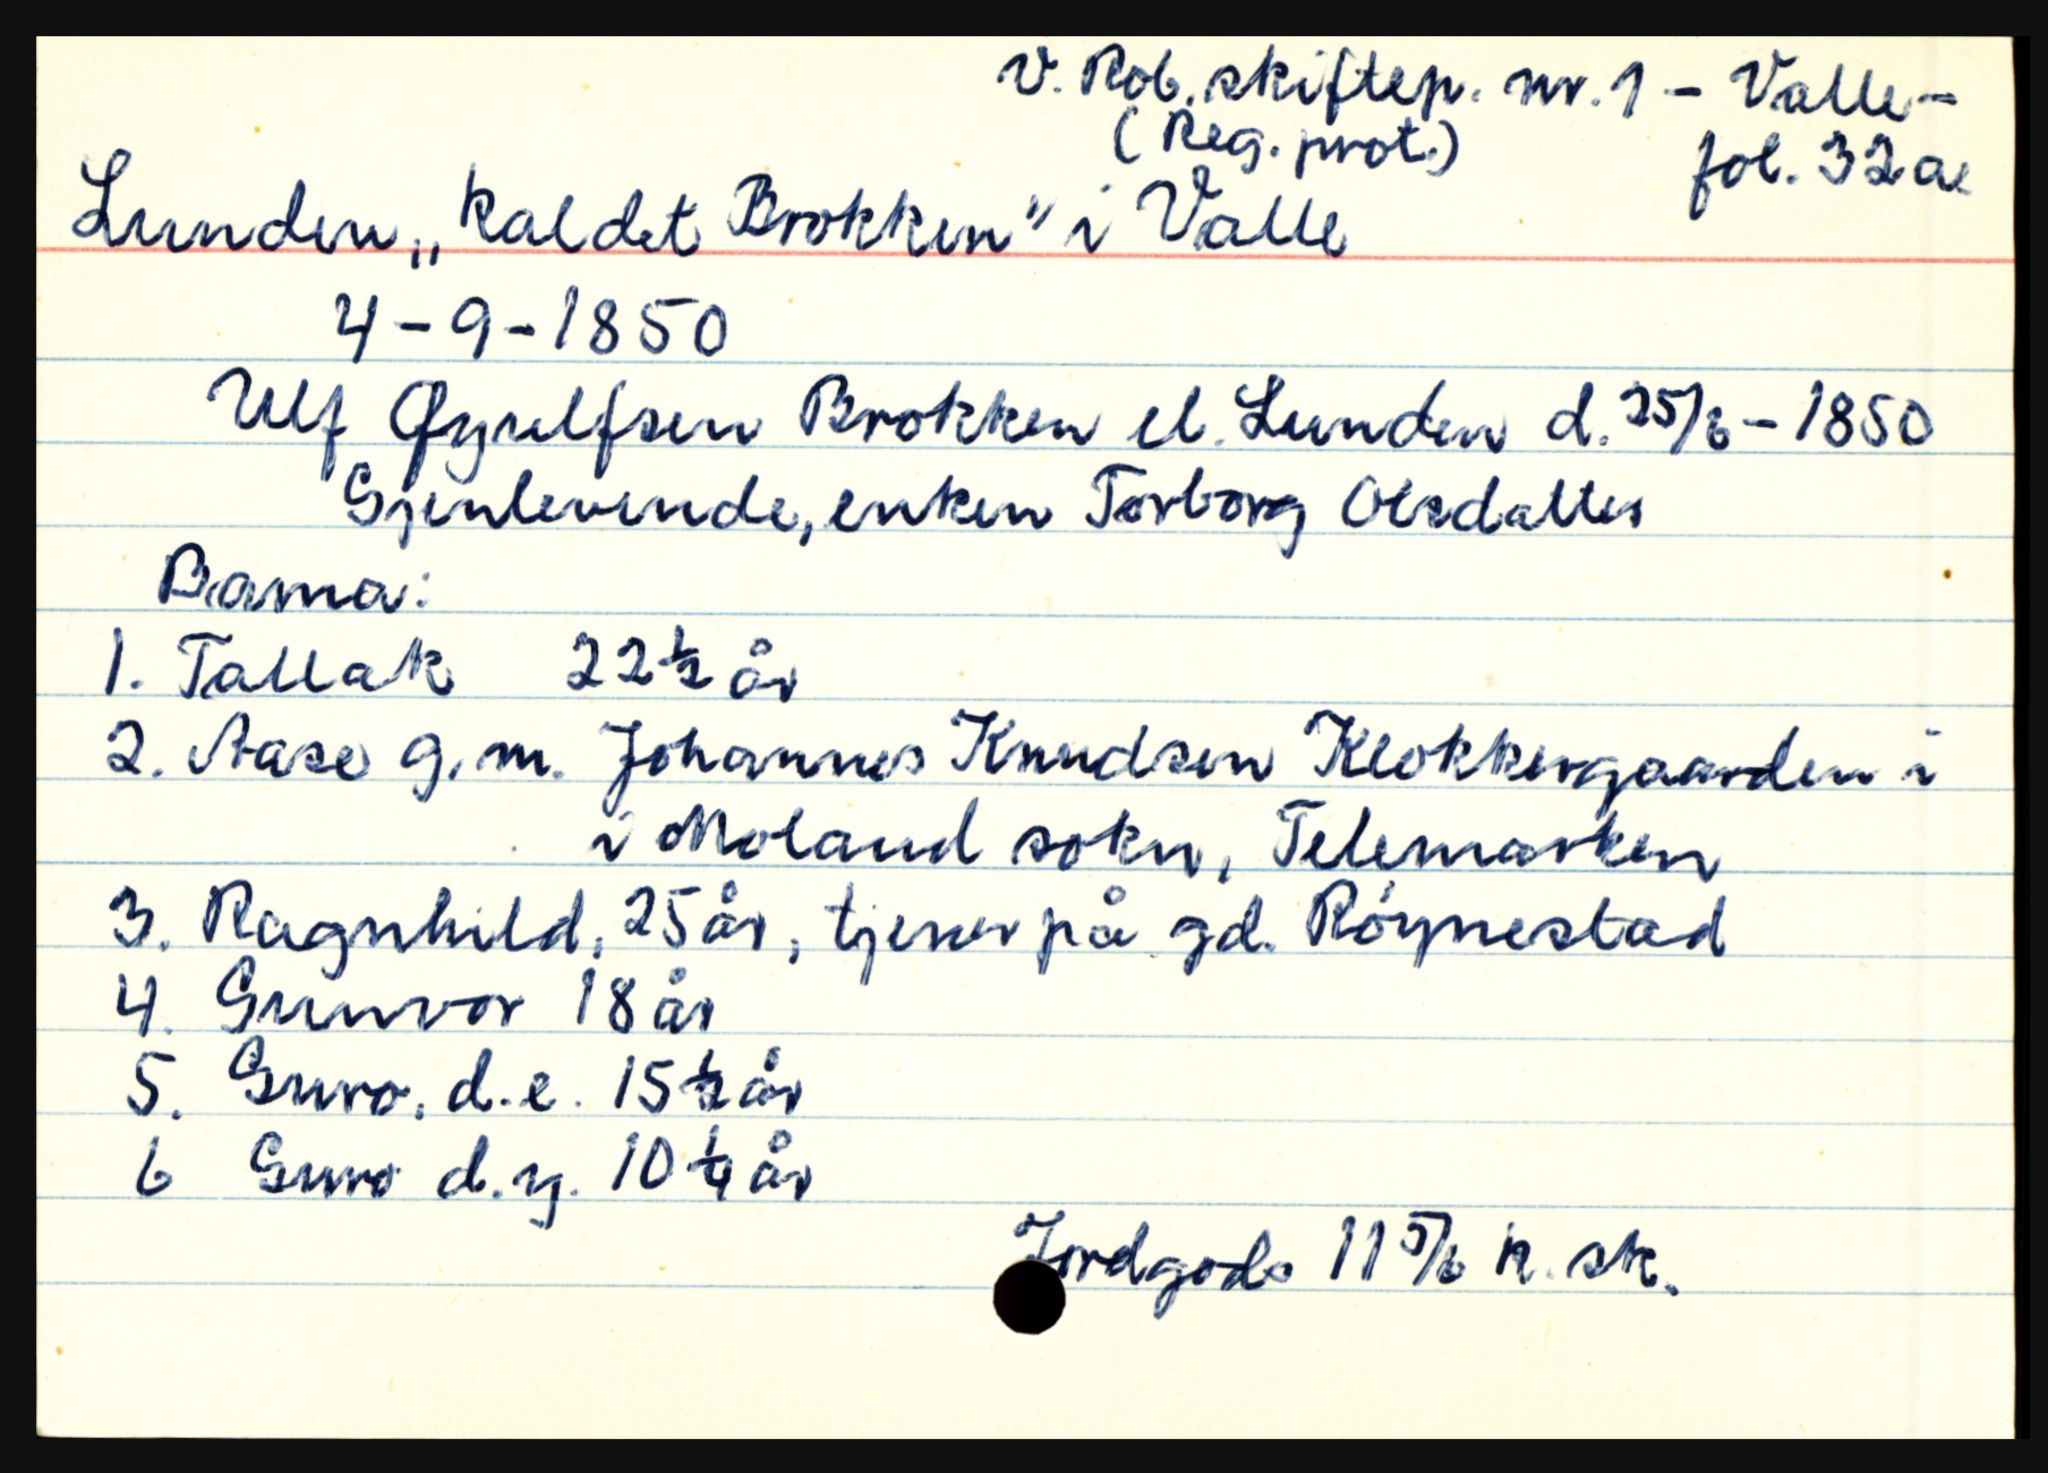 V. Rob. skiftep. nr. 1 - Valle -
(Reg. prot.) fol. 32a
Lunden „kaldet Brokken" i Valle
4-9-1850
Ulf Øyulfsen Brokken el. Lunden d. 25/6-1850
Gjenlevende, enken Torborg Olsdatter
Barna:
1. Tallak 22 1/2 år
2. Aase g. m. Johannes Knudsen Klokkergaarden i
i Moland sokn, Telemarken
3. Ragnhild, 25 år, tjener på gd. Röynestad
4. Gunvor 18 år
5. Guro, d.e. 15 1/2 år
6 Guro d.y. 10 1/4 år
Jordgods 11 5/6 k. sk.